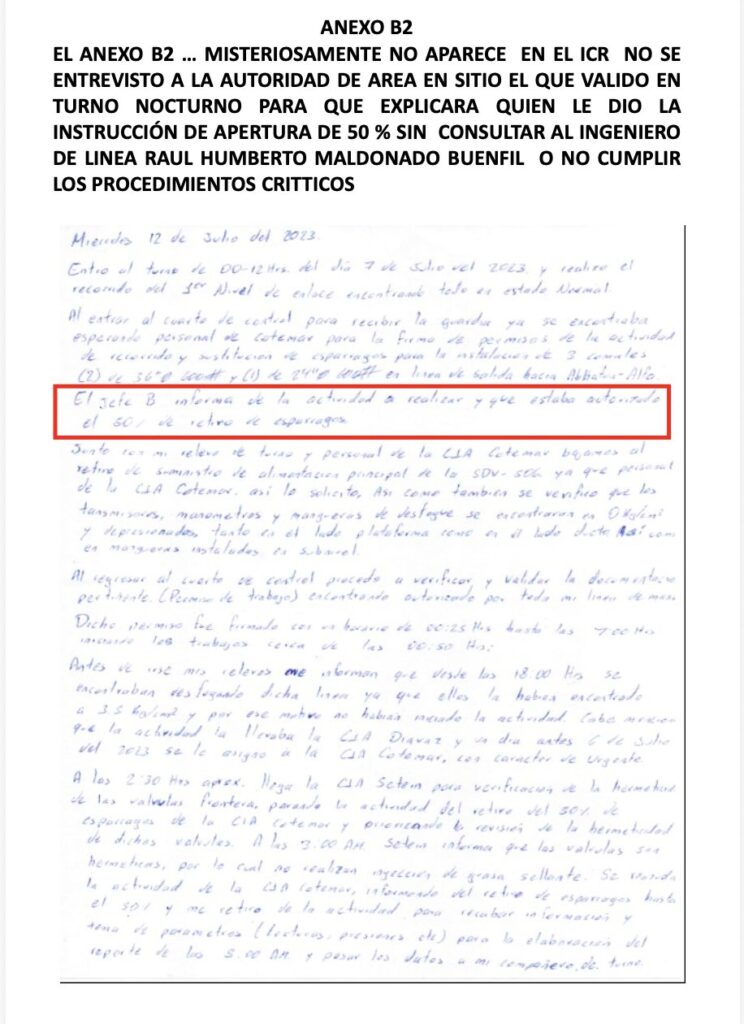 ANEXO B2
EL ANEXO B2 ... MISTERIOSAMENTE NO APARECE EN EL ICR NO SE
ENTREVISTO A LA AUTORIDAD DE AREA EN SITIO EL QUE VALIDO EN
TURNO NOCTURNO PARA QUE EXPLICARA QUIEN LE DIO LA
INSTRUCCIÓN DE APERTURA DE 50 % SIN CONSULTAR AL INGENIERO
DE LINEA RAUL HUMBERTO MALDONADO BUENFIL O NO CUMPLIR
LOS PROCEDIMIENTOS CRITTICOS
Miercoles 12 de Julio del 2023.
Entro al turno de 00-12 Hrs. del día 7 de Julio del 2023 y realizo el
recorrido del 1er Nivel de enlace encontrando todo en estado Normal.
Al entrar al cuarto de control para recibir la guardia ya se encontraba
esperando personal de Cotemar para la firma de permisos de la actividad
de recorrido y sustitución de esparragos para la instalación de 3 comales
(2) de 36"Ø 600# y (1) de 24"Ø 600# en linea de salida hacia Abkatun-Alfa.
El Jefe B informa de la actividad a realizar y que estaba autorizado
el 50% de retiro de esparragos.
Junto con mi relevo de turno y personal de la CIA Cotemar bajamos al
retiro de suministro de alimentación principal de la SDV-506 ya que personal
de la CIA Cotemar. así lo solicito, Así como tambien se verifico que los
transmisores, manometros y mangueras de desfogue se encontraran en 0 Kg/cm²
y depresionados, tanto en el lado plataforma como en el lado ducto. Así com
en mangueras instaladas en subnivel.
Al regresar al cuarto de control procedo a verificar y validar la documentacio
pertinente. (Permiso de trabajo) encontrando autorizado por toda mi linea de mando
Dicho permiso fue firmado con un horario de 00:25 Hrs hasta las 7:00 Hrs
iniciando los trabajos cerca de las 00:50 Hrs.
Antes de irse mis relevos me informan que desde las 18:00 Hrs se
encontraban desfogando dicha linea ya que ellos la habian encontrado
a 3.5 Kg/cm² y por ese motivo no habian iniciado la actividad. Cabe mencion
que la actividad la llevaba la CIA Diavaz y un dia antes 6 de Julio
del 2023 se le asigno a la CIA Cotemar, con caracter de Urgente.
A las 2:30 Hrs aprox. llega la CIA Setem para verificación de la hermetici
de las valvulas frontera, parando la actividad del retiro del 50% de
esparragos de la CIA Cotemar y priorizando la revisión de la hermeticidad
de dichas valvulas. A las 3:00 AM. Setem informa que las valvulas son
hermeticas, por lo cual no realizan inyección de grasa sellante. Se reanuda
la actividad de la CIA Cotemar, informando del retiro de esparragos hasta
el 50% y me retiro de la actividad para recabar información y
toma de parametros (lecturas, presiones etc) para la elaboración del
reporte de las 5:00 AM. y pasar los datos a mi compañero de turno.